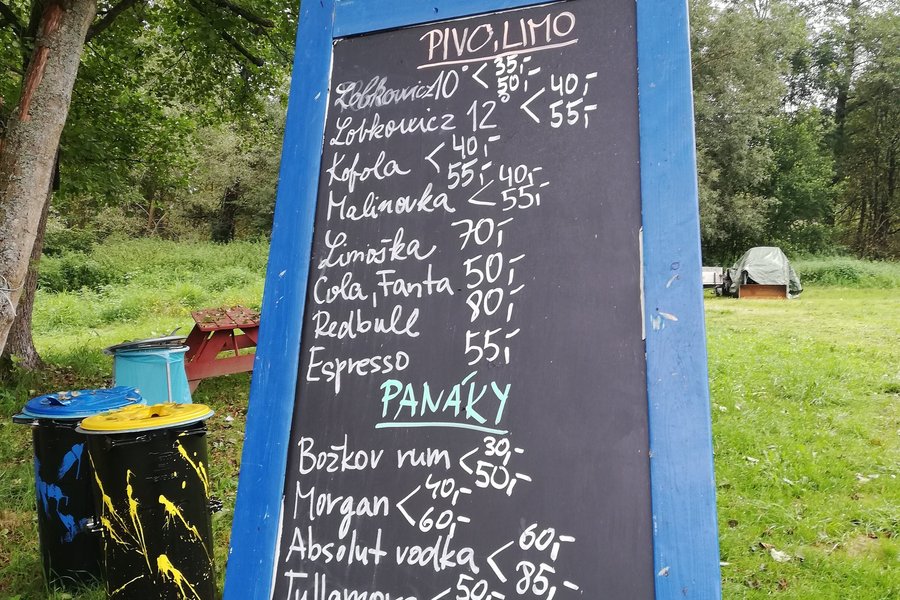 PIVO, LIMO
Lobkowicz 10° < 35,- 50,-
Lobkowicz 12 < 40,- 55,-
Kofola < 40,- 55,-
Malinovka < 40,- 55,-
Limoška 70,-
Cola, Fanta 50,-
Redbull 80,-
Espresso 55,-
PANÁKY
Božkov rum < 30,- 50,-
Morgan < 40,- 60,-
Absolut vodka < 60,- 85,-
< 50,-